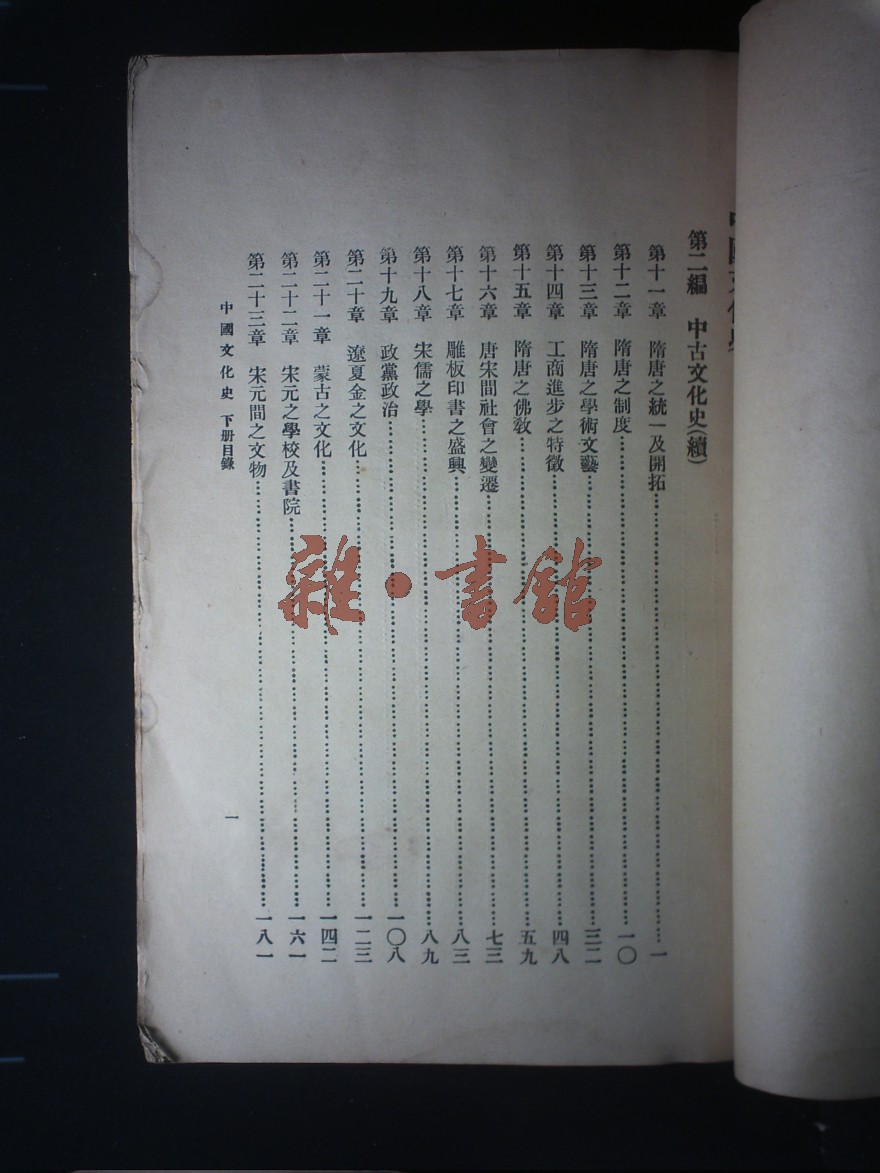 第二編　中古文化史(續)
第十一章　隋唐之統一及開拓……一
第十二章　隋唐之制度……一〇
第十三章　隋唐之學術文藝……三二
第十四章　工商進步之特徵……四八
第十五章　隋唐之佛敎……五九
第十六章　唐宋間社會之變遷……七三
第十七章　雕板印書之盛興……八三
第十八章　宋儒之學……八九
第十九章　政黨政治……一〇八
第二十章　遼夏金之文化……一二三
第二十一章　蒙古之文化……一四二
第二十二章　宋元之學校及書院……一六一
第二十三章　宋元間之文物……一八一
中國文化史　下册目錄　一
雜·書館